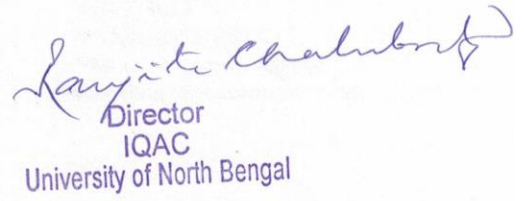 Ranjita Chakraborty
Director
IQAC
University of North Bengal